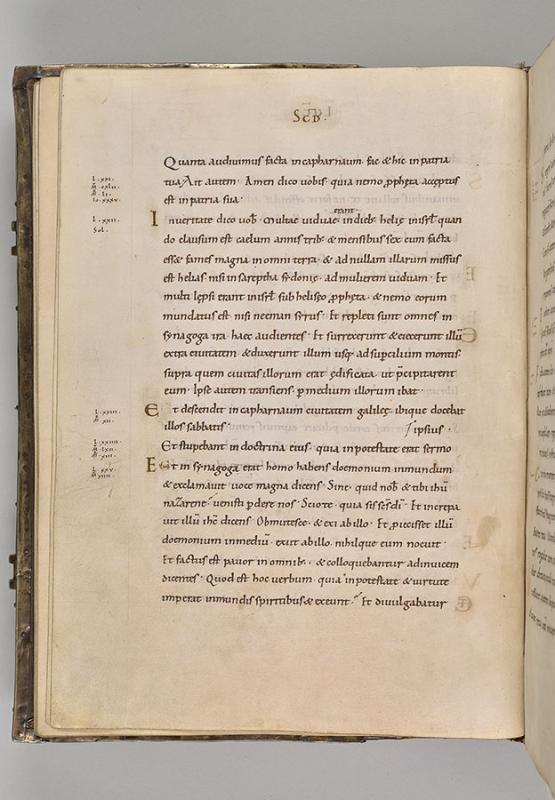 SCD
Quanta audiuimus facta in capharnaum · fac & hic in patria
tua · Ait autem · Amen dico uobis · quia nemo ꝓpheta acceptus
est in patria sua ·
erant
In ueritate dico uob̄ · multae uiduae in dieb; helię in isrl̄ quan
do clausum est caelum annis trib; & mensibus sex cum facta
esse& fames magna in omni terra · & ad nullam illarum missus
est helias nisi in sareptha sydonię · ad mulierem uiduam · Et
multi lepsi erant in isrl̄ sub heliseo ꝓpheta · & nemo eorum
mundatus est nisi neeman syrus · Et repleti sunt omnes in
synagoga ira · haec audientes · Et surrexerunt & eiecerunt illū
extra ciuitatem · & duxerunt illum usq; ad supcilium montis
supra quem ciuitas illorum erat ędificata ut p̄cipitarent
eum · Ipse autem transiens · ꝑ medium illorum ibat ·
Et descendit in capharnaum ciuitatem galileę · ibique docebat
illos sabbatis · ipsius ·
Et stupebant in doctrina eius · quia in potestate erat sermo
Et in synagoga erat homo habens daemonium inmundum
& exclamauit uoce magna dicens · Sine · quid nob̄ & tibi ihū
nazarene · uenisti ꝑdere nos · Scio te · quia sis sc̄s dī · Et increpa
uit illū ihc̄ dicens · Obmutesce · & exi ab illo · Et ꝓiecisset illū
daemonium in mediū · exiit ab illo · nihilque eum nocuit ·
Et factus est pauor in omnib; · & colloquebantur adinuicem
dicentes · Quod est hoc uerbum · quia in potestate & uirtute
imperat inmundis spiritibus & exeunt · Et diuulgabatur
l · xxi ·
l · xxii ·
Sol ·
l · xxiii ·
l · xxiiii ·
l · xxv ·